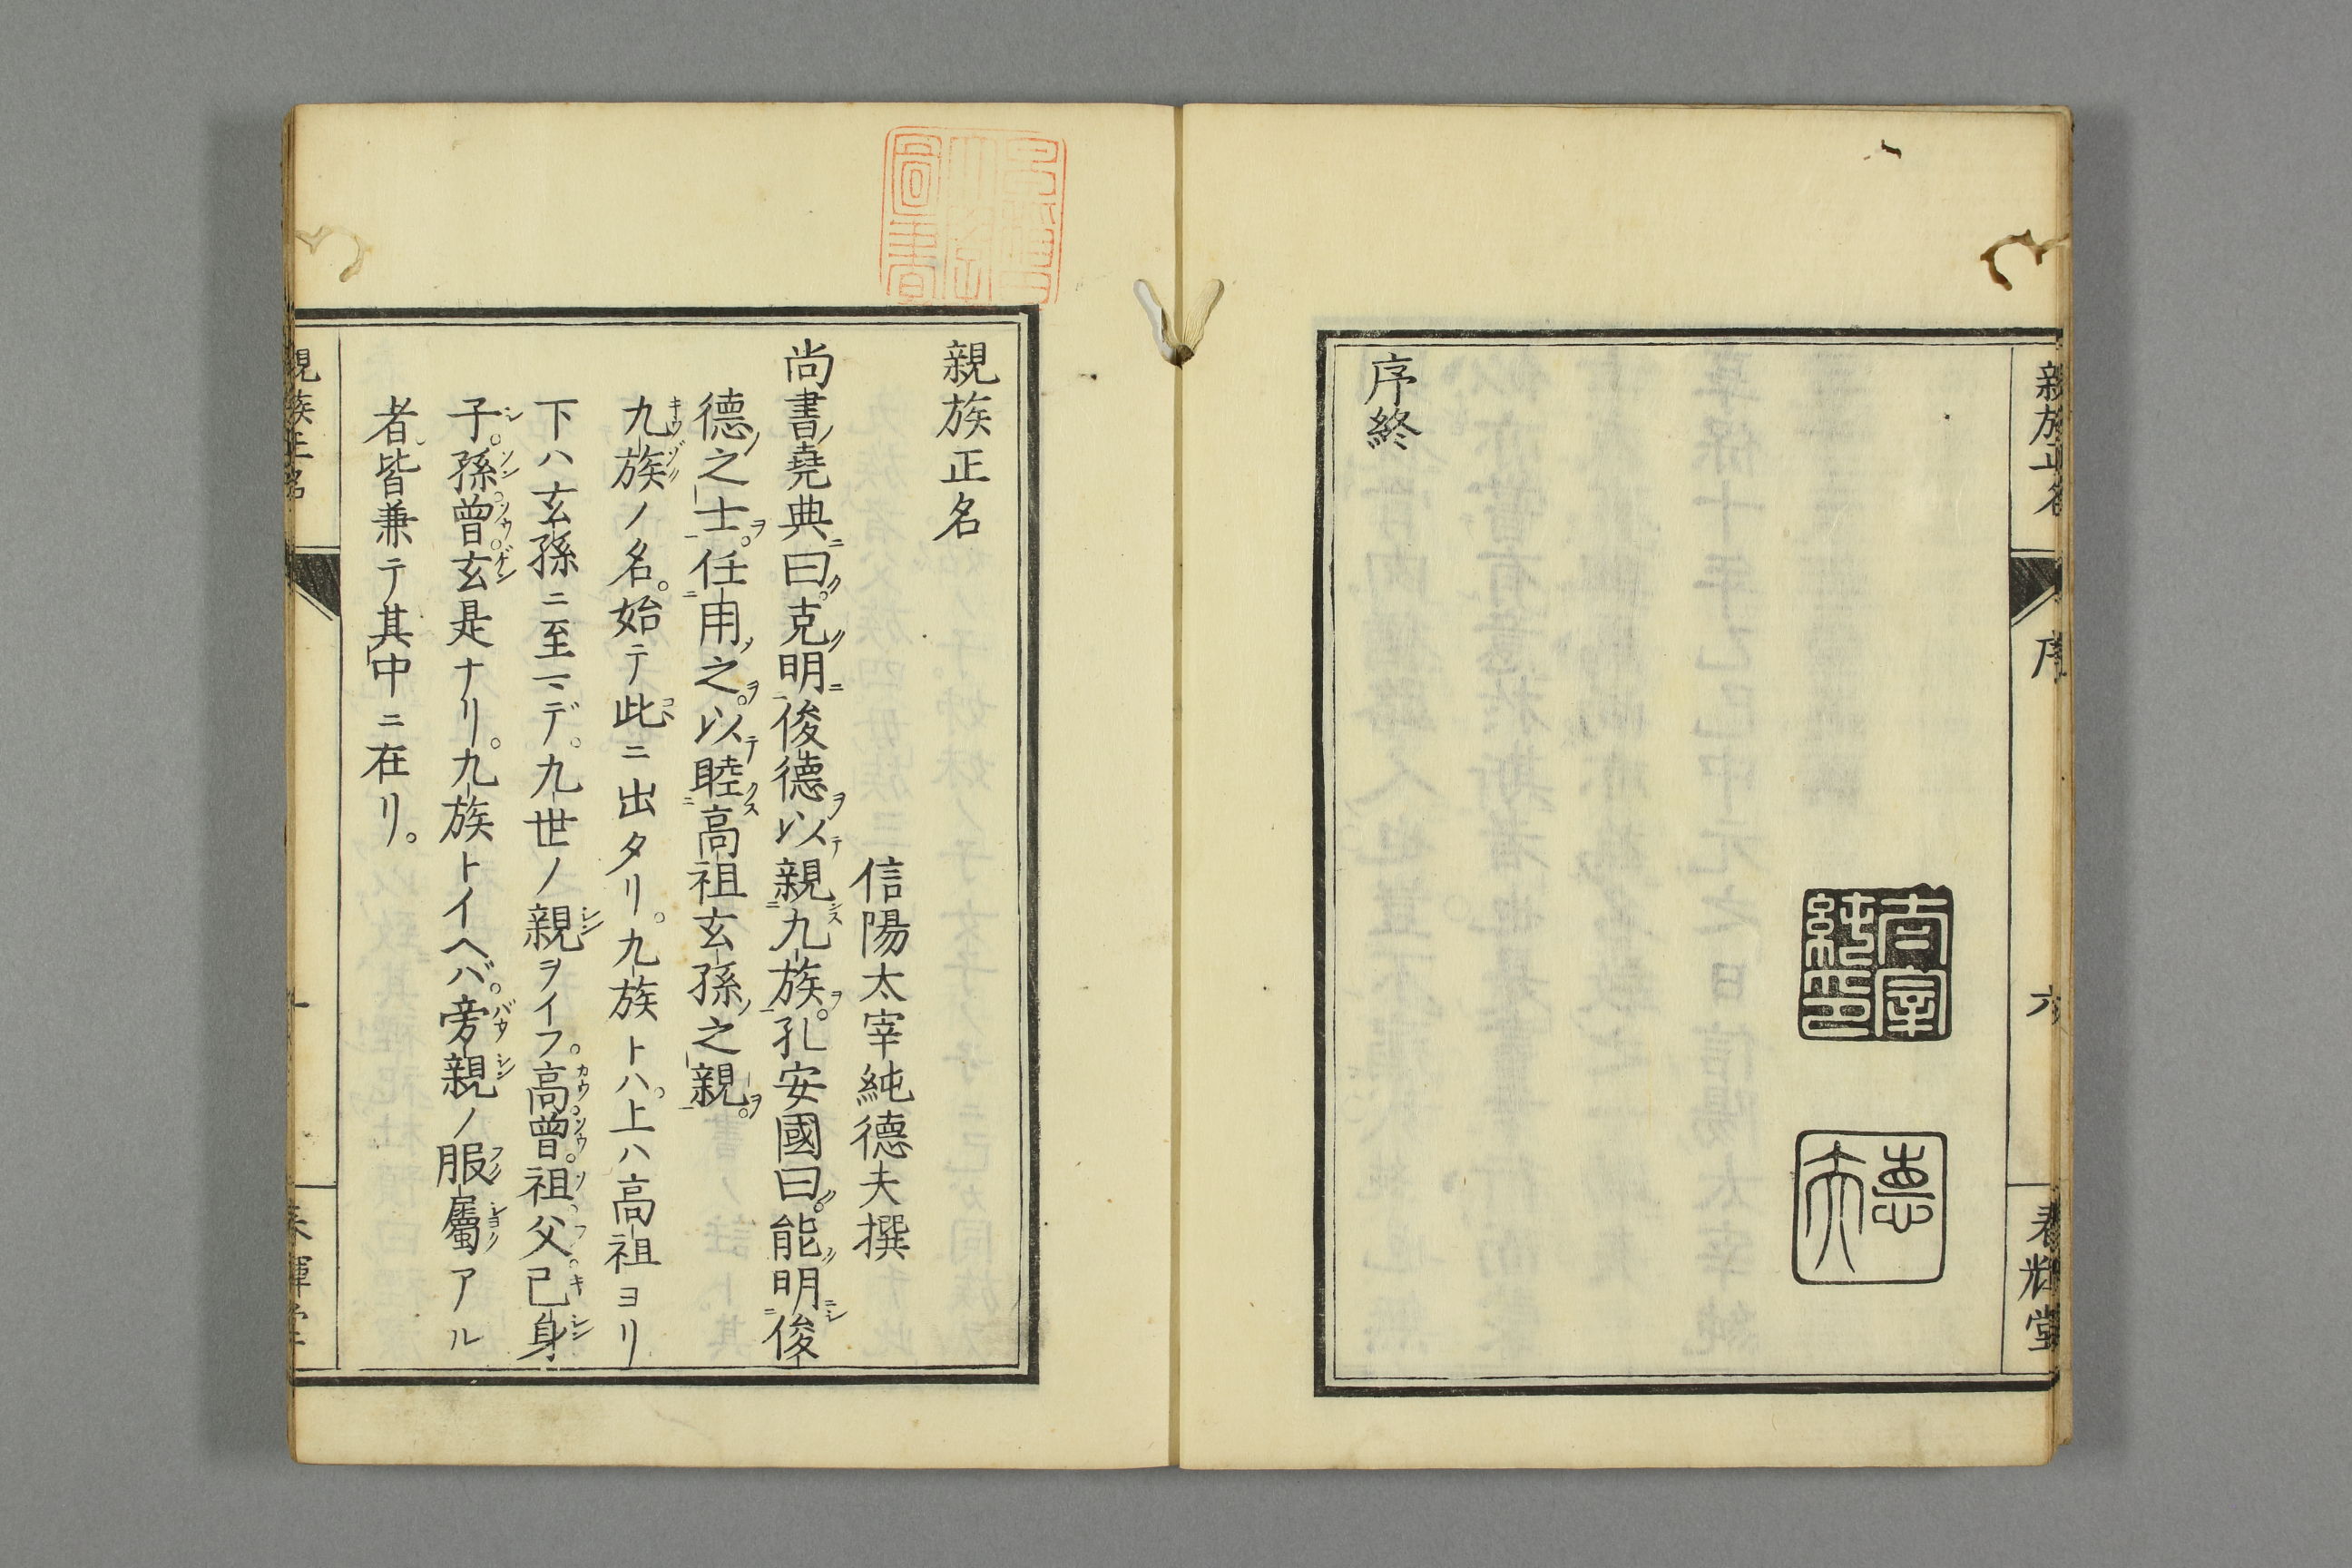 親族正名
序
六
春輝堂
太宰
純印
德
夫
序終
親族正名
信陽太宰純德夫撰
尚書堯典曰。克明俊德以親九族。孔安國曰。能明俊
德之士。任用之。以睦高祖玄孫之親。
九族ノ名。始テ此ニ出タリ。九族トハ。上ハ高祖ヨリ
下ハ玄孫ニ至マデ。九世ノ親ヲイフ。高。曾。祖。父。己身
子。孫。曾。玄是ナリ。九族トイヘバ。旁親ノ服屬アル
者。皆兼テ其中ニ在リ。
親族正名
一
春輝堂